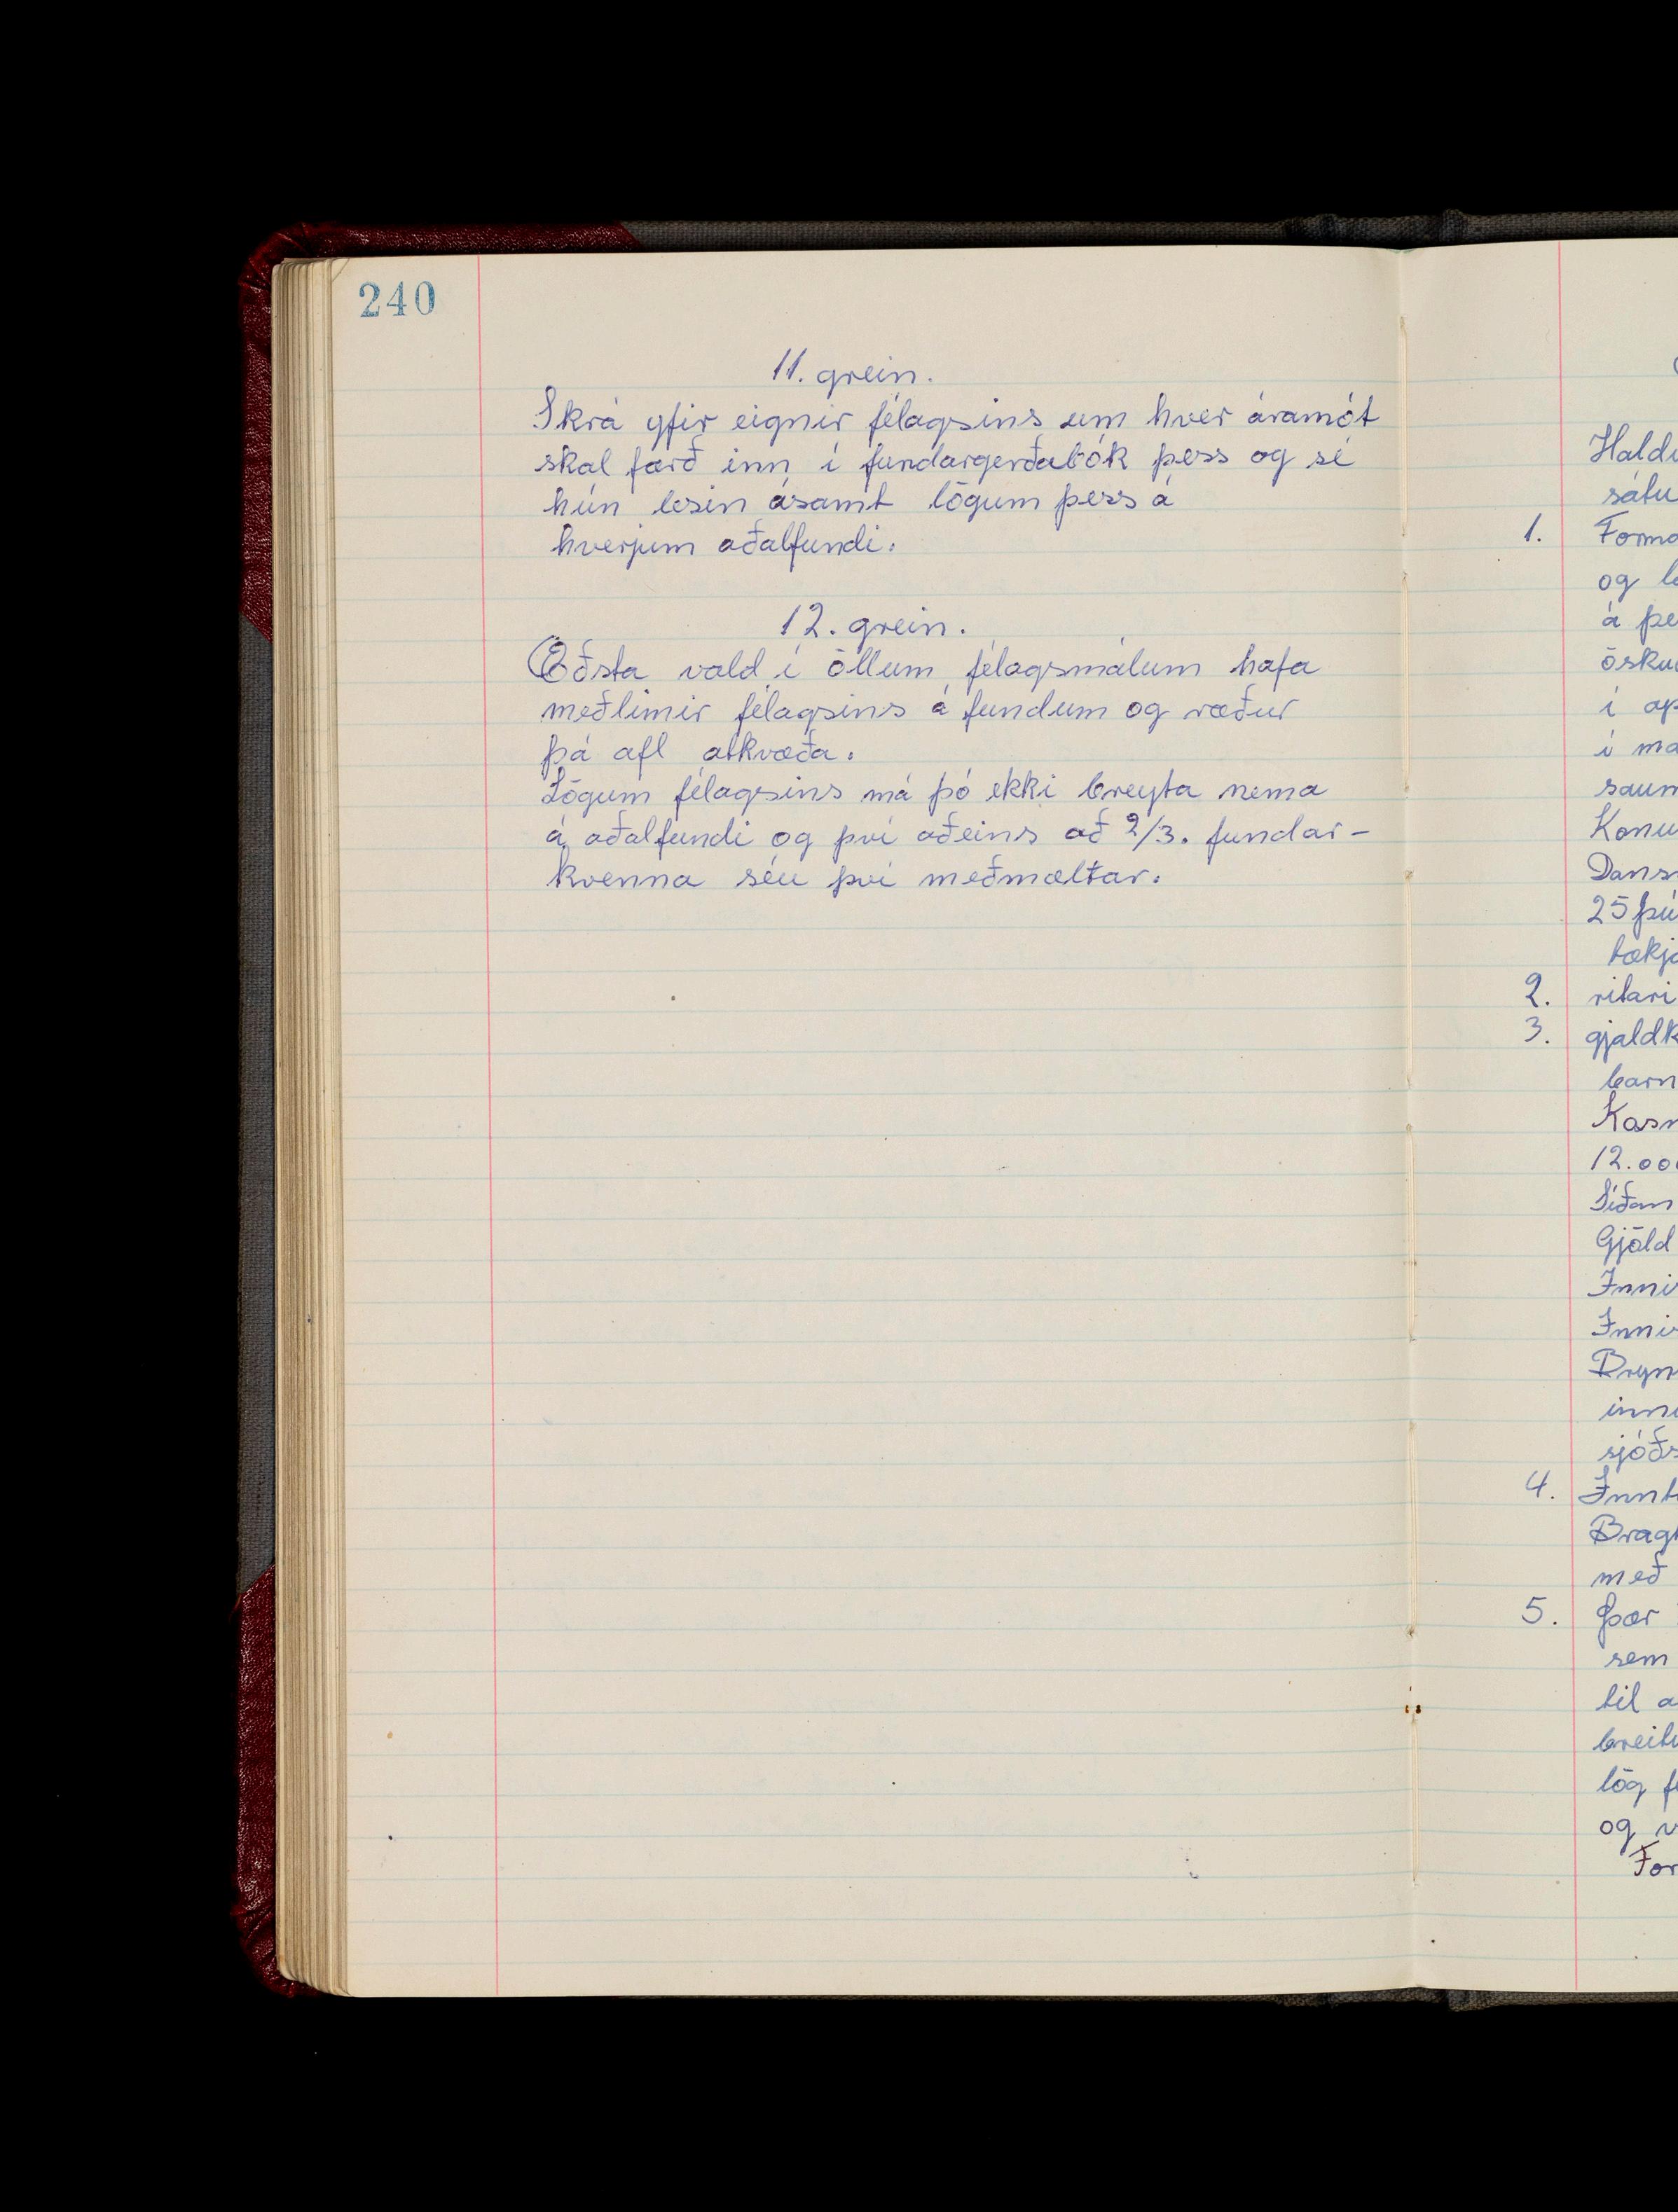 240
11. grein.
Skrá yfir eignir félagsins um hver áramót
skal færð inn í fundargerðabók þess og sé
hún lesin ásamt lögum þess á
hverjum aðalfundi.
12. grein.
Æðsta vald í öllum félagsmálum hafa
meðlimir félagsins á fundum og ræður
þá afl atkvæða.
Lögum félagsins má þó ekki breyta nema
á aðalfundi og því aðeins að 2/3. fundar-
kvenna séu því meðmæltar.
Hald
sátu
1. Forma
og l
á þe
ösku
í ap
í ma
saum
Konu
Dans
25 þú
tækj
2. ritari
3. gjaldk
barn
Kasn
12.00
Síðan
Gjöld
Inni
Inni
Bryn
inn
sjóðs
4. Innt
Brag
með
5. Þær
sem
til a
breit
lög f
og v
For